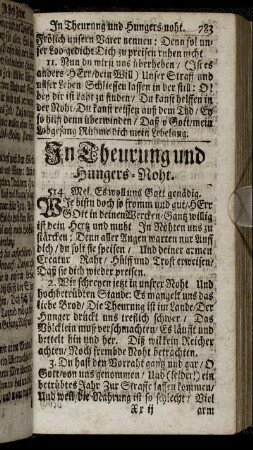 In Theurung und Hungers-noht. 783
Frölich unsern Vater nennen: Denn sol un-
ser Lob-gedicht Dich zu preisen ruhen nicht
11. Nun du wirst uns nicht verlassen/ (Ist es
anders HErr/dein Will) Unser Straff und
unser Leben Schliessen lassen in der still: O!
bey dir ist raht zu finden/ Du kanst helffen in
der Noht/Du kanst reissen auß dem Tod/ Ey
so hilff denn überwinden/ Daß/ o Gott/mein
Lobgesang Rühme dich mein Lebelang.
In Theurung und
Hungers-Noht.
514. Mel. Es woll uns Gott genädig.
WIe bistu doch so fromm und gut/HErr
GOtt in deinen Wercken/Gantz willig
ist dein Hertz und muht In Nöhten uns zu
stärcken: Denn aller Augen warten nur Auff
dich/ du solt sie speisen/ Und deiner armen
Creatur Raht/ Hülff und Trost erweisen/
Daß sie dich wieder preisen.
2. Wir schreyen jetzt in unsrer Noht Und
hochbetrübten Stande: Es mangelt uns das
liebe Brod/ Die Theurung ist im Lande/Der
Hunger drückt uns treflich schwer/ Das
Völcklein muß verschmachten/ Es läufft und
bettelt hin und her. Diß wil kein Reicher
achten/ Noch frembde Noht betrachten.
3. Du hast den Vorraht gantz und gar/ O
Gott/von uns genommen/ Und (leider!) ein
betrübtes Jahr Zur Straffe lassen kommen/
Und weil die Nahrung ist so schlecht/ Viel
Xx ij arm